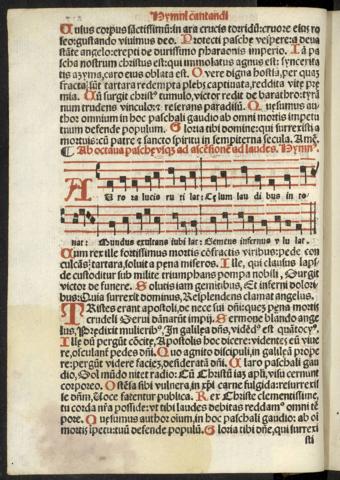 Hymni cantandi
Cuius corpus sāctissimū: in ara crucis torridū: cruore eius ro
seo: gustando viuimus deo. Protecti pasche vespere: a deua
stāte angelo: erepti de durissimo pharaonis imperio. Iā pa
scha nostrum christus est: qui immolatus agnus est: synceritа
tis azyma, caro eius oblata est. O vere digna hostia, per quaз
fracta sūt tartara redempta plebs captiuata, reddita vite pre
mia. Cū surgit christꝰ tumulo, victor redit de barathro: tyrā
num trudens vinculo: ⁊ reserans paradisū. Quesumus au
thor omnium in hoc paschali gaudio ab omni mortis impetu
tuum defende populum. Gloria tibi domine: qui surrexisti a
mortuis: cū patre ⁊ sancto spiritu in sempiterna secula. Amē.
¶ Ab octaua pasche vsqꝫ ad ascēsionē ad laudes. Hymnꝰ.
AU ro ra lucis ru ti lat: Celum lau di bus in to
nat: Mundus exultans iubi lat: Gemens infernus v lu lat.
Cum rex ille fortissimus mortis cōfractis viribus: pede con
culcās tartara, soluit a pena miseros. Ille, qui clausus lapi
de custoditur sub milite triumphans pompa nobili, Surgit
victor de funere. Solutis iam gemitibus, Et inferni dolori
bus: Quia surrexit dominus, Resplendens clamat angelus.
TRistes erant apostoli, de nece sui dñi: quē pena mortis
crudeli Serui dānarāt impij. Sermone blando ange
lus, Predixit mulieribꝰ, In galilea dñs, vidēdꝰ est quātocyꝰ.
Ille dū pergūt cōcite, Apostolis hoc dicere: videntes eū viue
re, osculant̄ pedes dñi. Quo agnito discipuli, in galileā prope
re: pergūt videre faciē, desideratā dñi. Claro paschali gau
dio, Sol mūdo nitet radio: Cū Christū iam apl̄i, visu cernūt
corporeo. Ostēsa sibi vulnera, in xp̄i carne fulgida: resurrexis
se dñm, Uoce fatentur publica. Rex Christe clementissime,
tu corda nr̄a posside: vt tibi laudes debitas reddamꝰ omni tē
pore. Quesumus author oīum, in hoc paschali gaudio: ab oī
mortis īpetu: tuū defende populū. Gloria tibi dñe, qui surrexi
sti